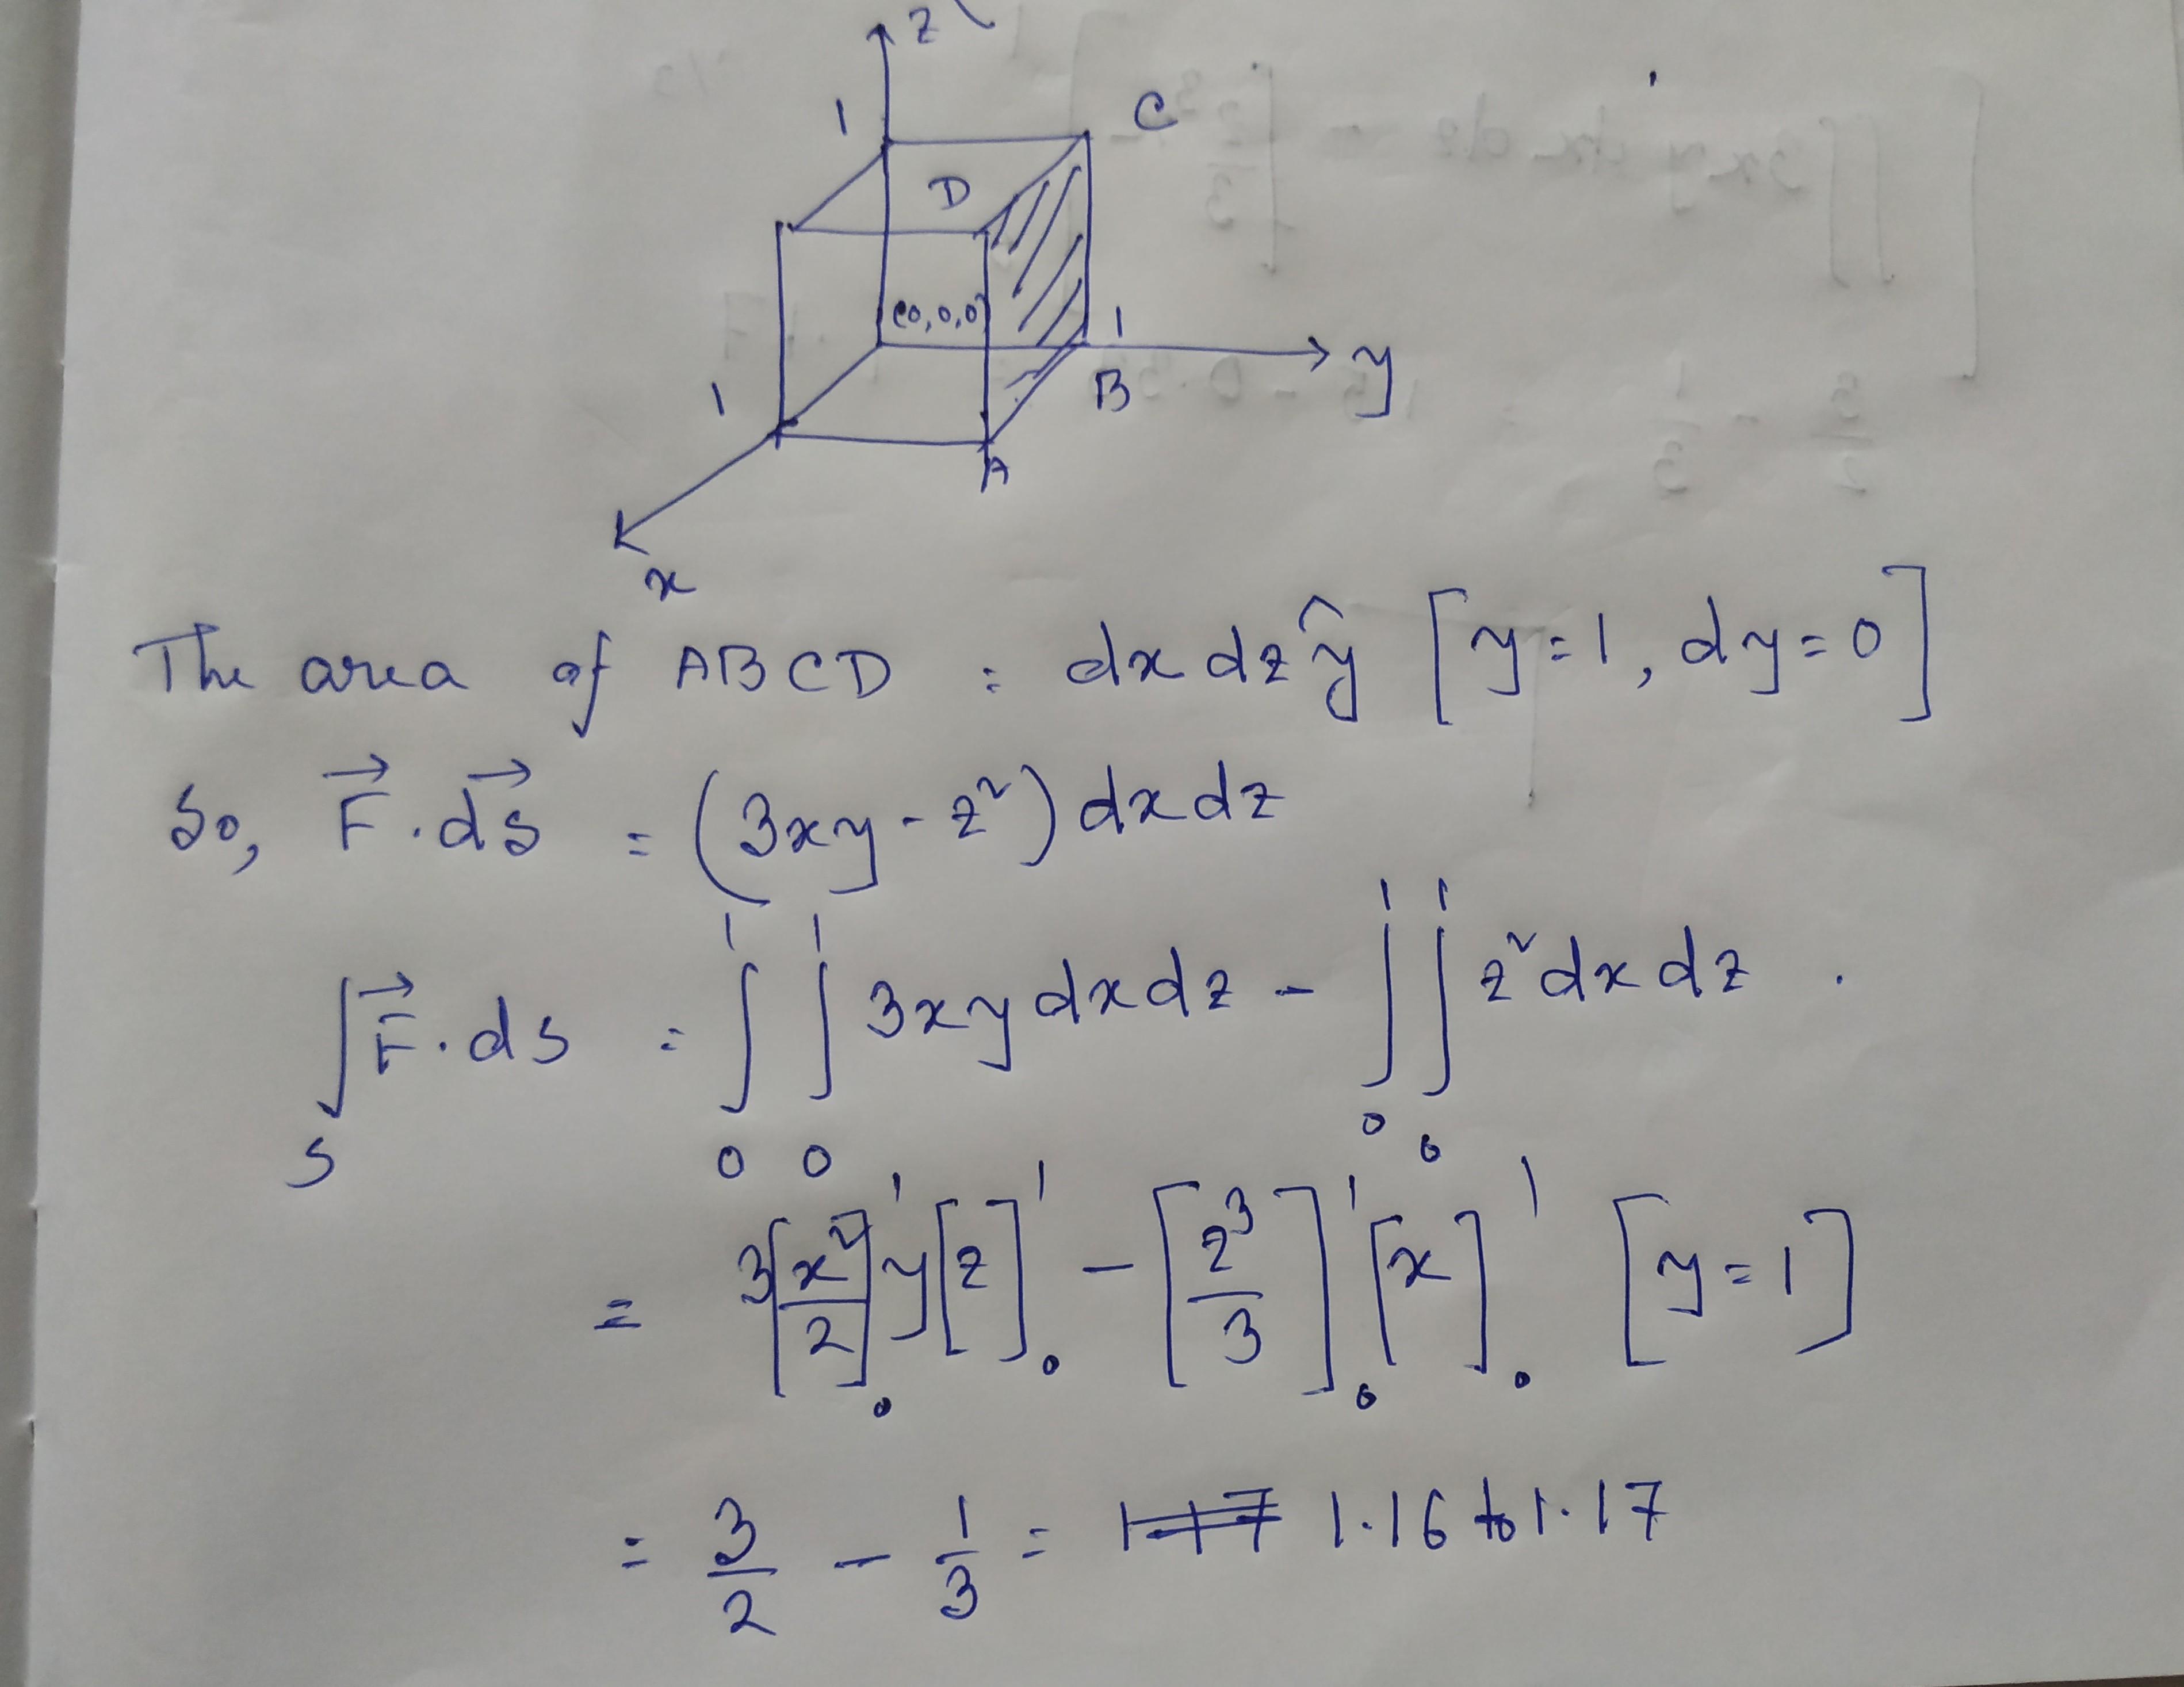 z
1
C
D
(0,0,0)
1
y
1
B
A
x
The area of ABCD : dx dz ŷ [y=1, dy=0]
So, F⃗ . ds⃗ = (3xy - z²) dx dz
∫_S F⃗ . ds = ∫₀¹ ∫₀¹ 3xy dx dz - ∫₀¹ ∫₀¹ z² dx dz .
= 3[x²/2]₀¹ y[z]₀¹ - [z³/3]₀¹ [x]₀¹ [y=1]
= 3/2 - 1/3 = 1.16 to 1.17